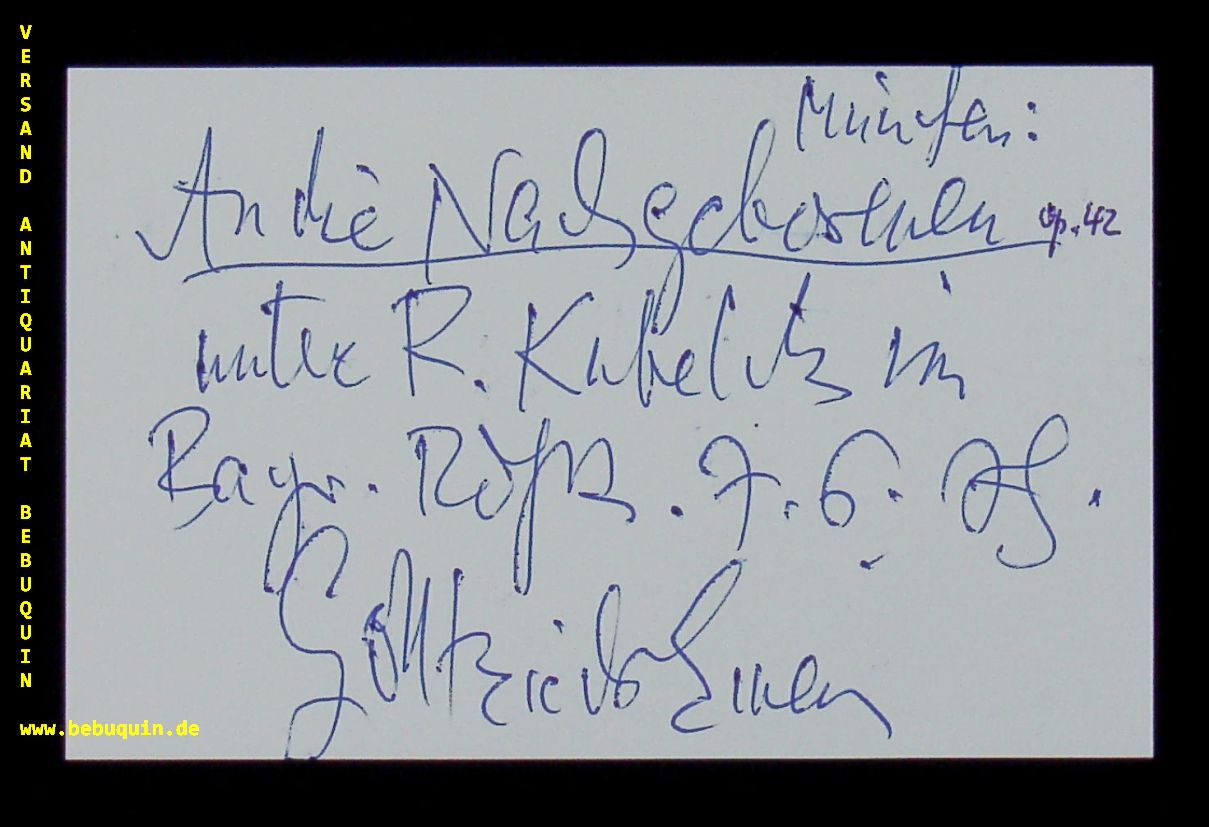 VERSAND ANTIQUARIAT BEBUQUIN
www.bebuquin.de
München:
An die Nachgeborenen op. 42
unter R. Kubelik im
Bayr. 7. 6.
Gottfried Einem